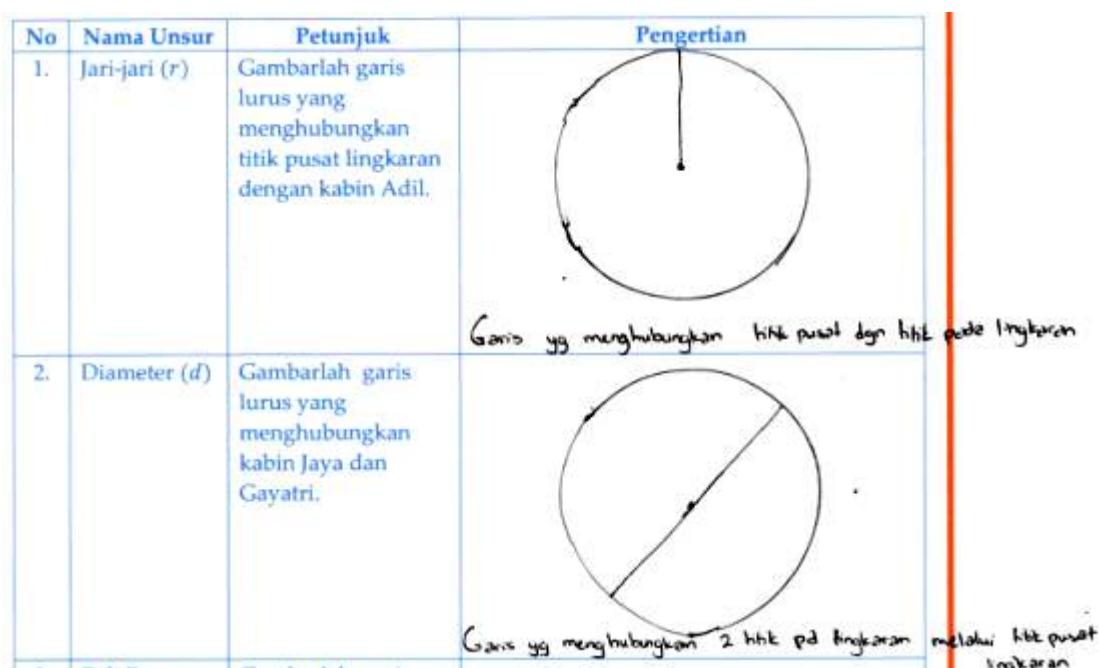 No Nama Unsur Petunjuk Pengertian
1. Jari-jari (r) Gambarlah garis
lurus yang
menghubungkan
titik pusat lingkaran
dengan kabin Adil.
Garis yg menghubungkan titik pusat dgn titik pada lingkaran
2. Diameter (d) Gambarlah garis
lurus yang
menghubungkan
kabin Jaya dan
Gayatri.
Garis yg menghubungkan 2 titik pd lingkaran melalui titik pusat
lingkaran